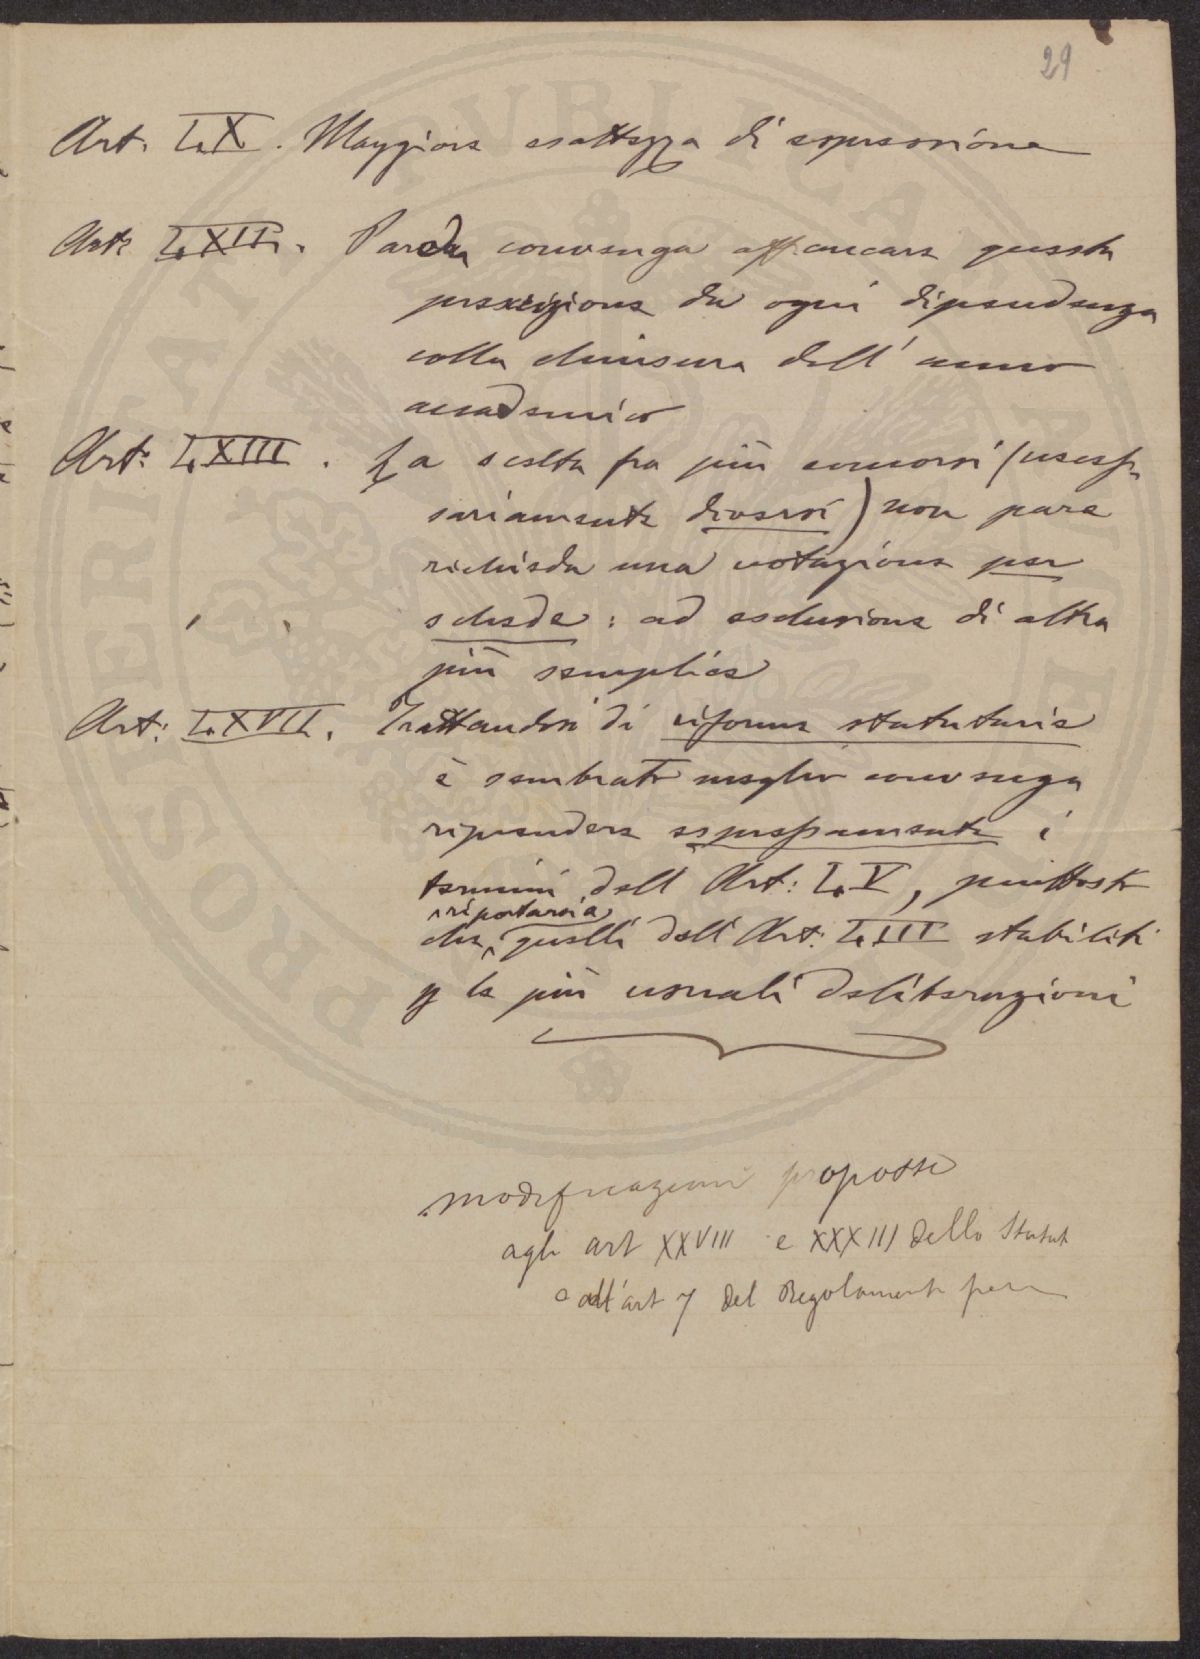 29
Art. LX. Maggiore esattezza di espressione
Art: LXII. Pareva convenga affrancare questa
prescrizione da ogni dipendenza
colla chiusura dell'anno
accademico
Art: LXIII. La scelta fra più concorsi (neces-
sariamente diversi) non pare
richieda una votazione per
schede: ad esclusione di altra
più semplice
Art: LXVII. Trattandosi di riforme statutarie
è sembrato meglio convenga
riprendere espressamente i
termini dell'Art: LV, piuttosto
riportarsi a
che quelli dell'Art: LIII stabiliti
p le più usuali deliberazioni
modificazioni proposte
agli art XXVIII e XXXIII dello Statuto
e all'art 7 del Regolamento
PUBLICA
PROSPERITATI